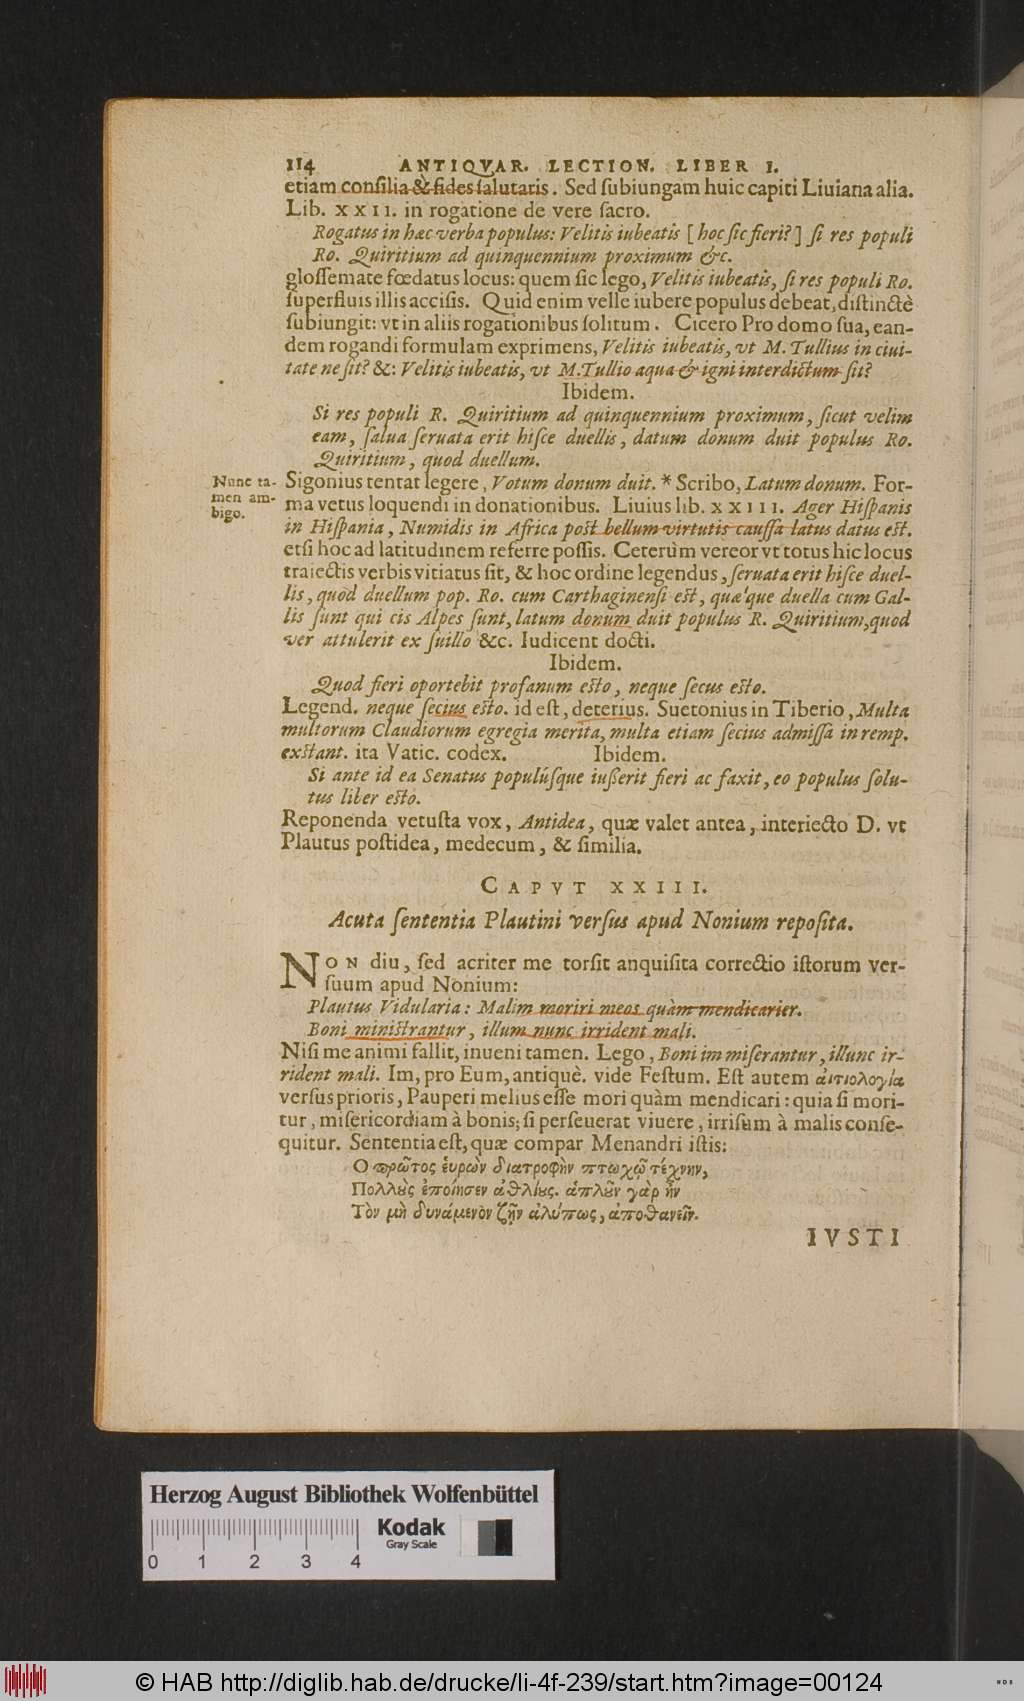 114 ANTIQVAR. LECTION. LIBER I.
etiam conſilia & fides ſalutaris. Sed ſubiungam huic capiti Liuiana alia.
Lib. XXII. in rogatione de vere ſacro.
Rogatus in hæc verba populus: Velitis iubeatis [hoc ſic fieri?] ſi res populi
Ro. Quiritium ad quinquennium proximum &c.
gloſſemate fœdatus locus: quem ſic lego, Velitis iubeatis, ſi res populi Ro.
ſuperfluis illis acciſis. Quid enim velle iubere populus debeat, diſtinctè
ſubiungit: vt in aliis rogationibus ſolitum. Cicero Pro domo ſua, ean-
dem rogandi formulam exprimens, Velitis iubeatis, vt M. Tullius in ciui-
tate ne ſit? &: Velitis iubeatis, vt M. Tullio aqua & igni interdictum ſit?
Ibidem.
Si res populi R. Quiritium ad quinquennium proximum, ſicut velim
eam, ſalua ſeruata erit hiſce duellis, datum donum duit populus Ro.
Quiritium, quod duellum.
Nunc ta-
men am-
bigo.
Sigonius tentat legere, Votum donum duit. * Scribo, Latum donum. For-
ma vetus loquendi in donationibus. Liuius lib. XXIII. Ager Hiſpanis
in Hiſpania, Numidis in Africa poſt bellum virtutis cauſſa latus datus eſt.
etſi hoc ad latitudinem referre poſſis. Ceterùm vereor vt totus hic locus
traiectis verbis vitiatus ſit, & hoc ordine legendus, ſeruata erit hiſce duel-
lis, quod duellum pop. Ro. cum Carthaginenſi eſt, quæ'que duella cum Gal-
lis ſunt qui cis Alpes ſunt, latum donum duit populus R. Quiritium, quod
ver attulerit ex ſuillo &c. Iudicent docti.
Ibidem.
Quod fieri oportebit profanum eſto, neque ſecus eſto.
Legend. neque ſecius eſto. id eſt, deterius. Suetonius in Tiberio, Multa
multorum Claudiorum egregia merita, multa etiam ſecius admiſſa in remp.
exſtant. ita Vatic. codex. Ibidem.
Si ante id ea Senatus populúſque iuſſerit fieri ac faxit, eo populus ſolu-
tus liber eſto.
Reponenda vetuſta vox, Antidea, quæ valet antea, interiecto D. vt
Plautus poſtidea, medecum, & ſimilia.
CAPVT XXIII.
Acuta ſententia Plautini verſus apud Nonium repoſita.
NON diu, ſed acriter me torſit anquiſita correctio iſtorum ver-
ſuum apud Nonium:
Plautus Vidularia: Malim moriri meos quàm mendicarier.
Boni miniſtrantur, illum nunc irrident mali.
Niſi me animi fallit, inueni tamen. Lego, Boni im miſerantur, illunc ir-
rident mali. Im, pro Eum, antiquè. vide Feſtum. Eſt autem αἰτιολογία
verſus prioris, Pauperi melius eſſe mori quàm mendicari: quia ſi mori-
tur, miſericordiam à bonis; ſi perſeuerat viuere, irriſum à malis conſe-
quitur. Sententia eſt, quæ compar Menandri iſtis:
Ὁ πρῶτος εὑρὼν διατροφὴν πτωχῷ τέχνην,
Πολλοὺς ἐποίησεν ἀθλίους. ἁπλοῦν γὰρ ἦν
Τὸν μὴ δυνάμενον ζῆν ἀλύπως, ἀποθανεῖν.
IVSTI
Herzog August Bibliothek Wolfenbüttel
Kodak
Gray Scale
0 1 2 3 4
© HAB http://diglib.hab.de/drucke/li-4f-239/start.htm?image=00124